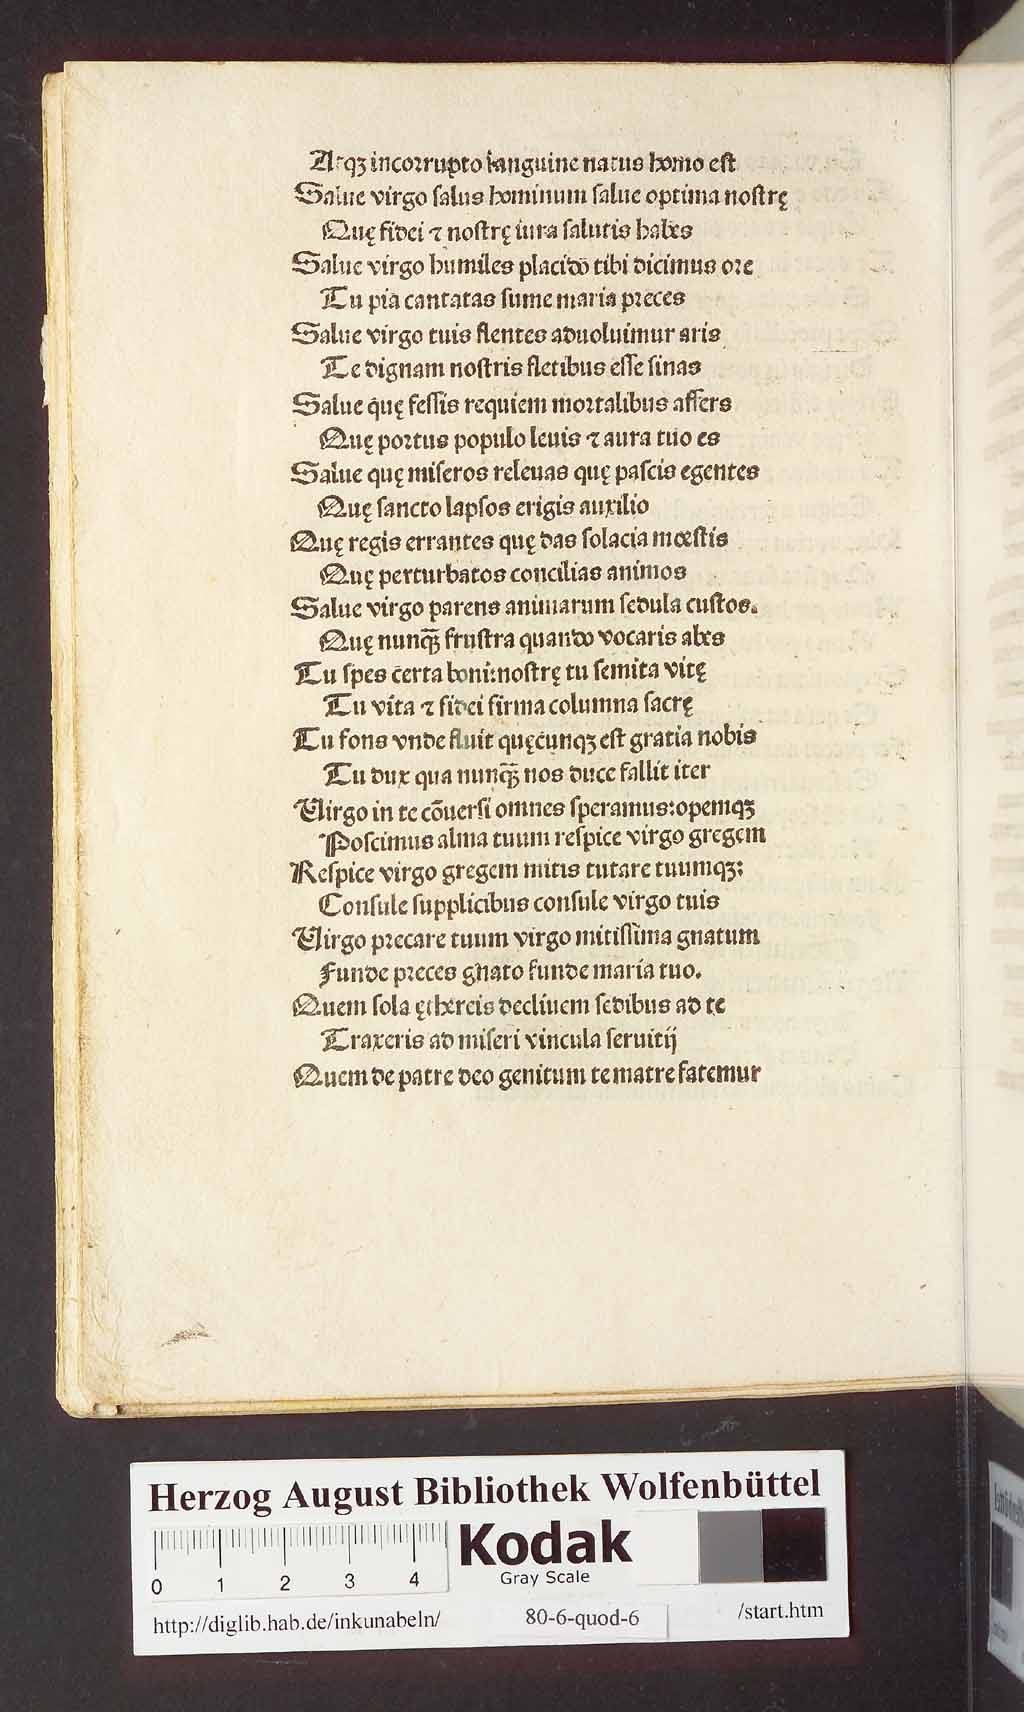 Atqꝫ incorrupto sanguine natus homo est
Salue virgo salus hominum salue optima nostrę
Quę fidei ⁊ nostrę iura salutis habes
Salue virgo humiles placido tibi dicimus ore
Tu pia cantatas sume maria preces
Salue virgo tuis flentes aduoluimur aris
Te dignam nostris fletibus esse sinas
Salue quę fessis requiem mortalibus affers
Quę portus populo leuis ⁊ aura tuo es
Salue quę miseros releuas quę pascis egentes
Quę sancto lapsos erigis auxilio
Quę regis errantes quę das solacia mœstis
Quę perturbatos concilias animos
Salue virgo parens animarum sedula custos.
Quę nunqꝫ̄ frustra quando vocaris abes
Tu spes certa boni:nostrę tu semita vitę
Tu vita ⁊ fidei firma columna sacrę
Tu fons vnde fluit quęcunqꝫ est gratia nobis
Tu dux qua nunqꝫ̄ nos duce fallit iter
Virgo in te cōuersi omnes speramus:opemqꝫ
Poscimus alma tuum respice virgo gregem
Respice virgo gregem mitis tutare tuumqꝫ:
Consule supplicibus consule virgo tuis
Virgo precare tuum virgo mitissima gnatum
Funde preces gnato funde maria tuo.
Quem sola ęthereis decliuem sedibus ad te
Traxeris ad miseri vincula seruitij
Quem de patre deo genitum te matre fatemur
Herzog August Bibliothek Wolfenbüttel
Kodak
Gray Scale
0 1 2 3 4
http://diglib.hab.de/inkunabeln/ 80-6-quod-6 /start.htm